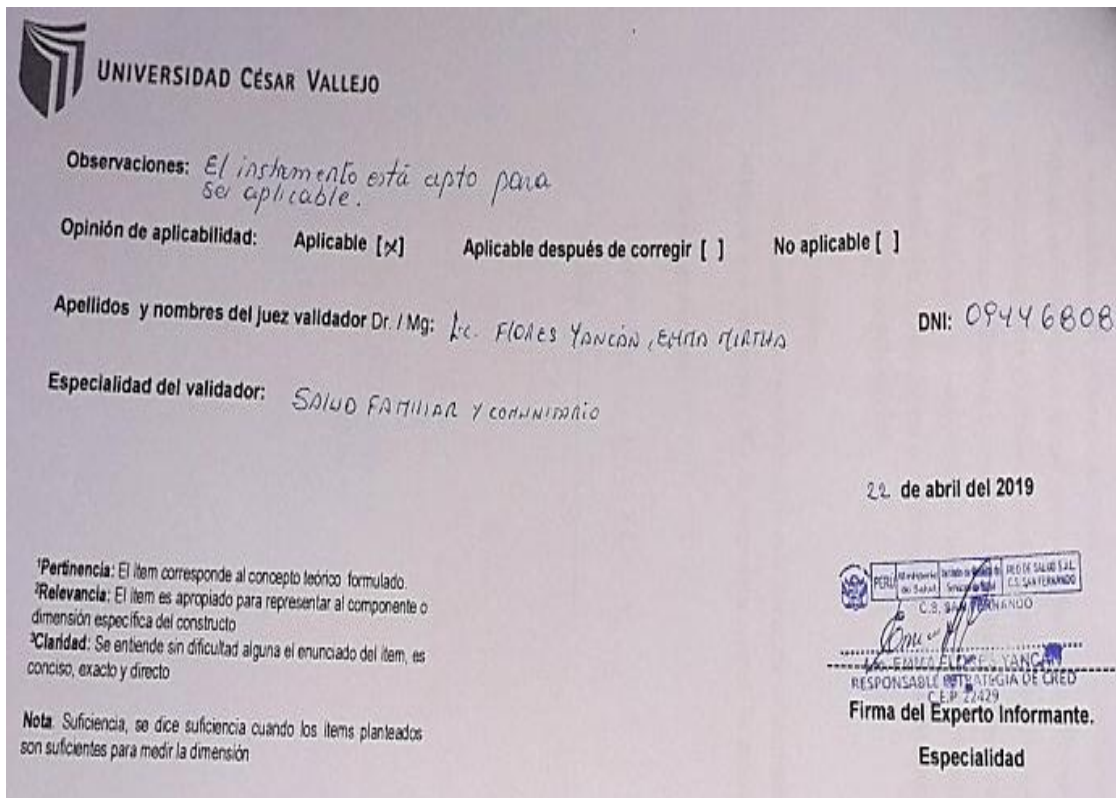 UNIVERSIDAD CÉSAR VALLEJO
Observaciones: El instrumento está apto para
ser aplicable.
Opinión de aplicabilidad: Aplicable [x] Aplicable después de corregir [ ] No aplicable [ ]
Apellidos y nombres del juez validador Dr. / Mg: Lic. FLORES YANCÁN, EMMA MIRTHA DNI: 09446808
Especialidad del validador: SALUD FAMILIAR Y COMUNITARIO
22 de abril del 2019
¹Pertinencia: El ítem corresponde al concepto teórico formulado.
²Relevancia: El ítem es apropiado para representar al componente o
dimensión específica del constructo
³Claridad: Se entiende sin dificultad alguna el enunciado del ítem, es
conciso, exacto y directo
Nota. Suficiencia, se dice suficiencia cuando los ítems planteados
son suficientes para medir la dimensión
PERÚ Ministerio de Salud RED DE SALUD S.J.L.
C.S. SAN FERNANDO
C.S. SAN FERNANDO
Lic. EMMA FLORES YANCÁN
RESPONSABLE ESTRATEGIA DE CRED
C.E.P. 22429
Firma del Experto Informante.
Especialidad